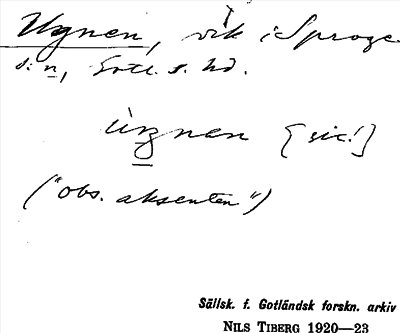 Ugnen, vik i Sproge
s:n, Gotl. s. hd.
ùgnen [sic!]
("obs. aksenten")
Sällsk. f. Gotländsk forskn. arkiv
NILS TIBERG 1920—23